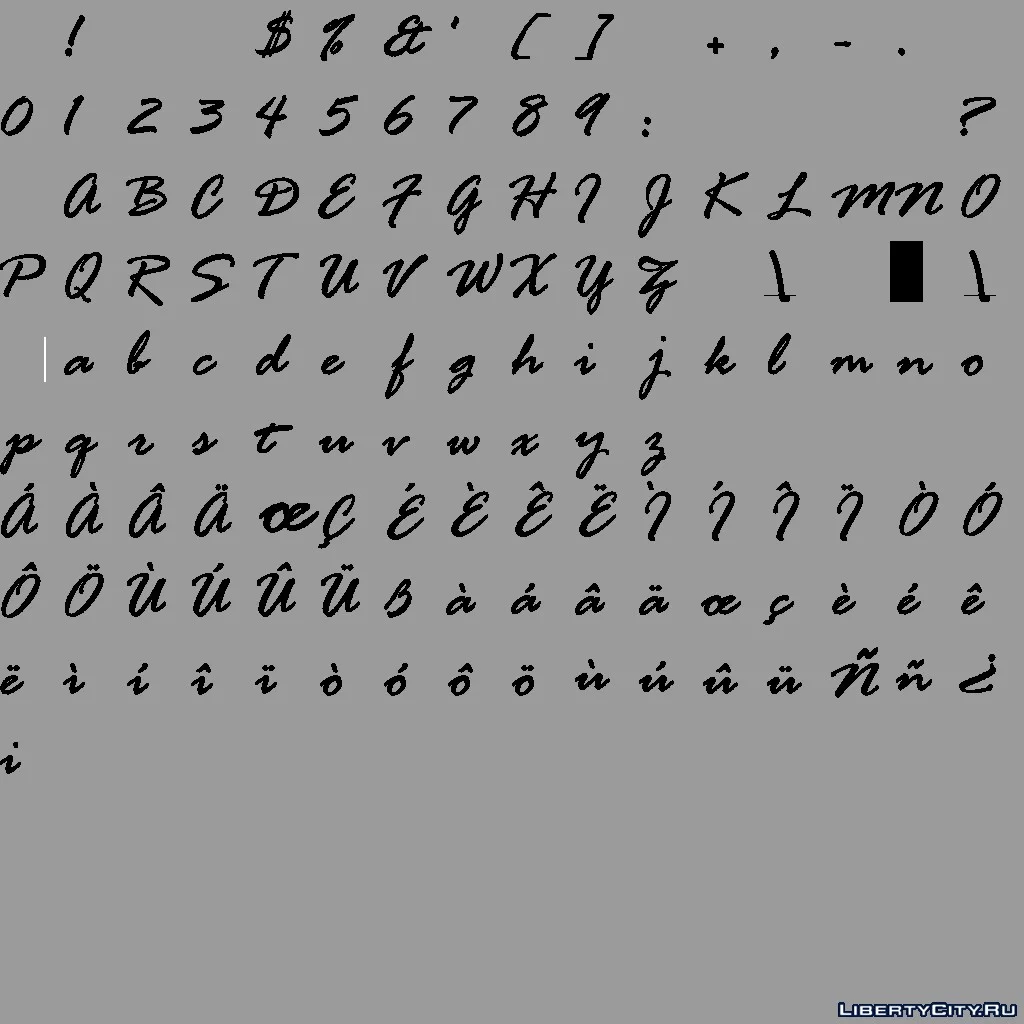 ! $ % & ' [ ] + , - .
0 1 2 3 4 5 6 7 8 9 : ?
A B C D E F G H I J K L M N O
P Q R S T U V W X Y Z \ \
a b c d e f g h i j k l m n o
p q r s t u v w x y z
Á À Â Ä œ Ç É È Ê Ë Ì Í Î Ï Ò Ó
Ô Ö Ù Ú Û Ü ß à á â ä œ ç è é ê
ë ì í î ï ò ó ô ö ù ú û ü Ñ ñ ¿
i
LibertyCity.Ru